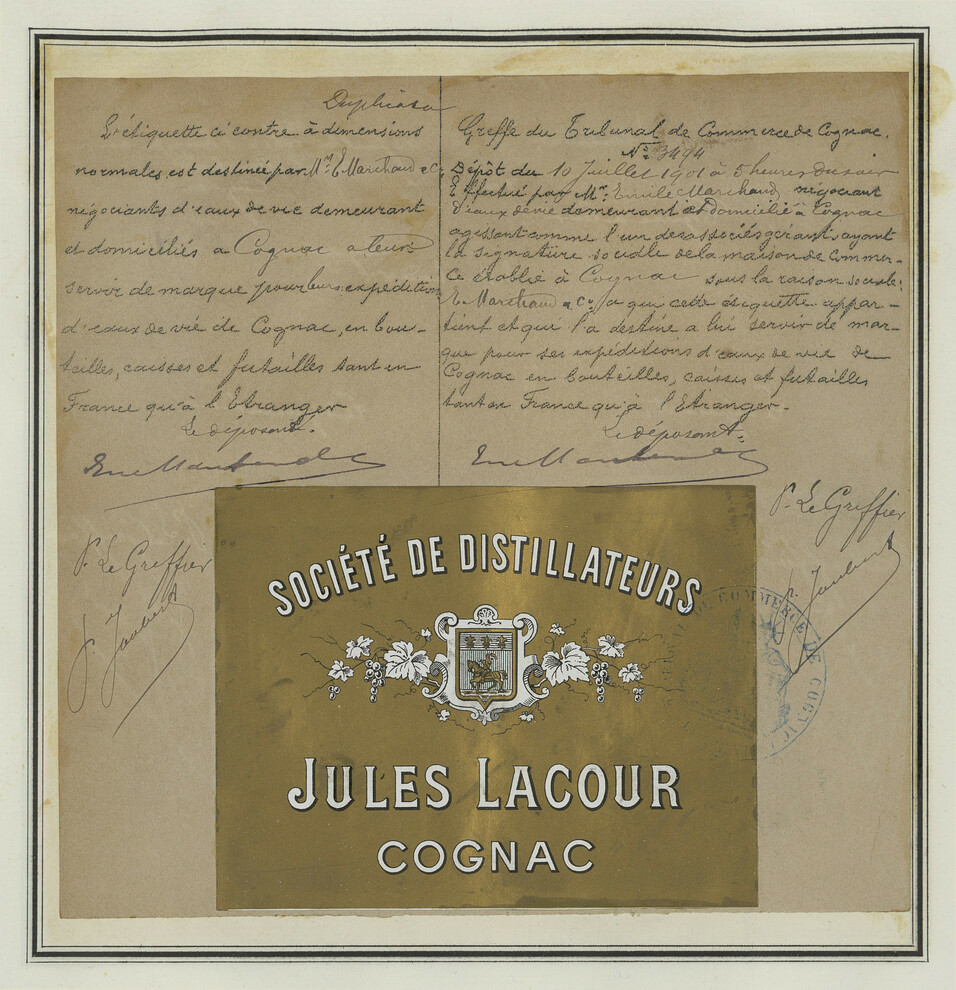 Duplicata
L'étiquette ci contre à dimensions
normales est destinée par Mr. E. Marchaud & Cie
négociants d'eaux de vie demeurant
et domiciliés a Cognac a leur
servir de marque pour leurs expéditions
d'eaux de vie de Cognac, en bou-
teilles, caisses et futailles tant en
France qu'à l'Etranger
Le déposant.
P. Le Greffier
Greffe du Tribunal de Commerce de Cognac.
No. 3494
Dépôt du 10 Juillet 1901 à 5 heures du soir
Effectué par Mr. Emile Marchaud, négociant
d'eaux de vie demeurant et domicilié à Cognac
agissant comme l'un des associés gérant, ayant
la signature sociale de la maison de Commer-
ce établie à Cognac sous la raison sociale:
E. Marchaud & Co, a qui cette étiquette appar-
tient et qui l'a destine a lui servir de mar-
que pour ses expéditions d'eaux de vie de
Cognac en bouteilles, caisses et futailles
tant en France qu'à l'Etranger.
Le déposant.
P. Le Greffier
SOCIÉTÉ DE DISTILLATEURS
JULES LACOUR
COGNAC
COMMERCE DE COGNAC